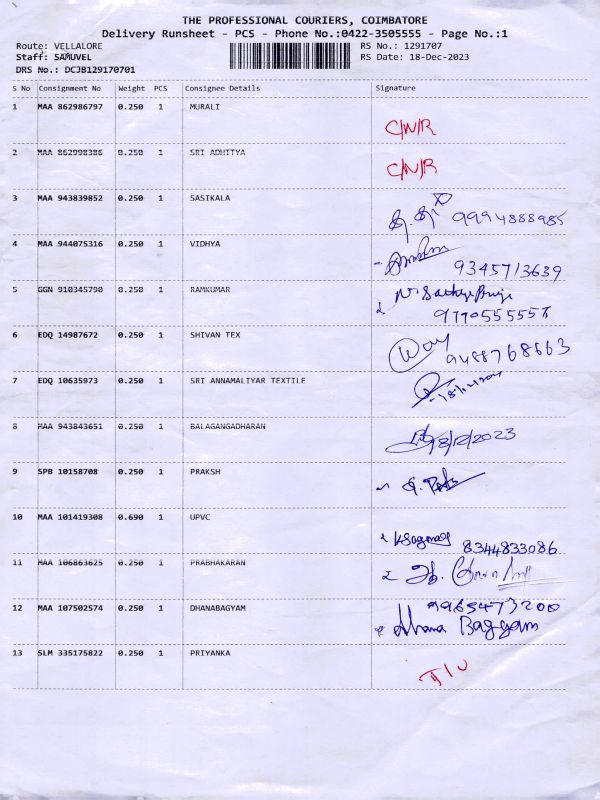 THE PROFESSIONAL COURIERS, COIMBATORE
Delivery Runsheet - PCS - Phone No.:0422-3505555 - Page No.:1
Route: VELLALORE RS No.: 1291707
Staff: SAMUVEL RS Date: 18-Dec-2023
DRS No.: DCJB129170701
S No Consignment No Weight PCS Consignee Details Signature
1 MAA 862986797 0.250 1 MURALI
C/N/R
2 MAA 862998386 0.250 1 SRI ADHITYA
C/N/R
3 MAA 943839852 0.250 1 SASIKALA
9994888985
4 MAA 944075316 0.250 1 VIDHYA
9345713639
5 GGN 910345790 0.250 1 RAMKUMAR
6 EDQ 14987672 0.250 1 SHIVAN TEX
7 EDQ 10635973 0.250 1 SRI ANNAMALIYAR TEXTILE
8 MAA 943843651 0.250 1 BALAGANGADHARAN
18/12/2023
9 SPB 10158708 0.250 1 PRAKSH
10 MAA 101419308 0.690 1 UPVC
8344833086
11 MAA 106863625 0.250 1 PRABHAKARAN
12 MAA 107502574 0.250 1 DHANABAGYAM
9965473200
Dhana Bagyam
13 SLM 335175822 0.250 1 PRIYANKA